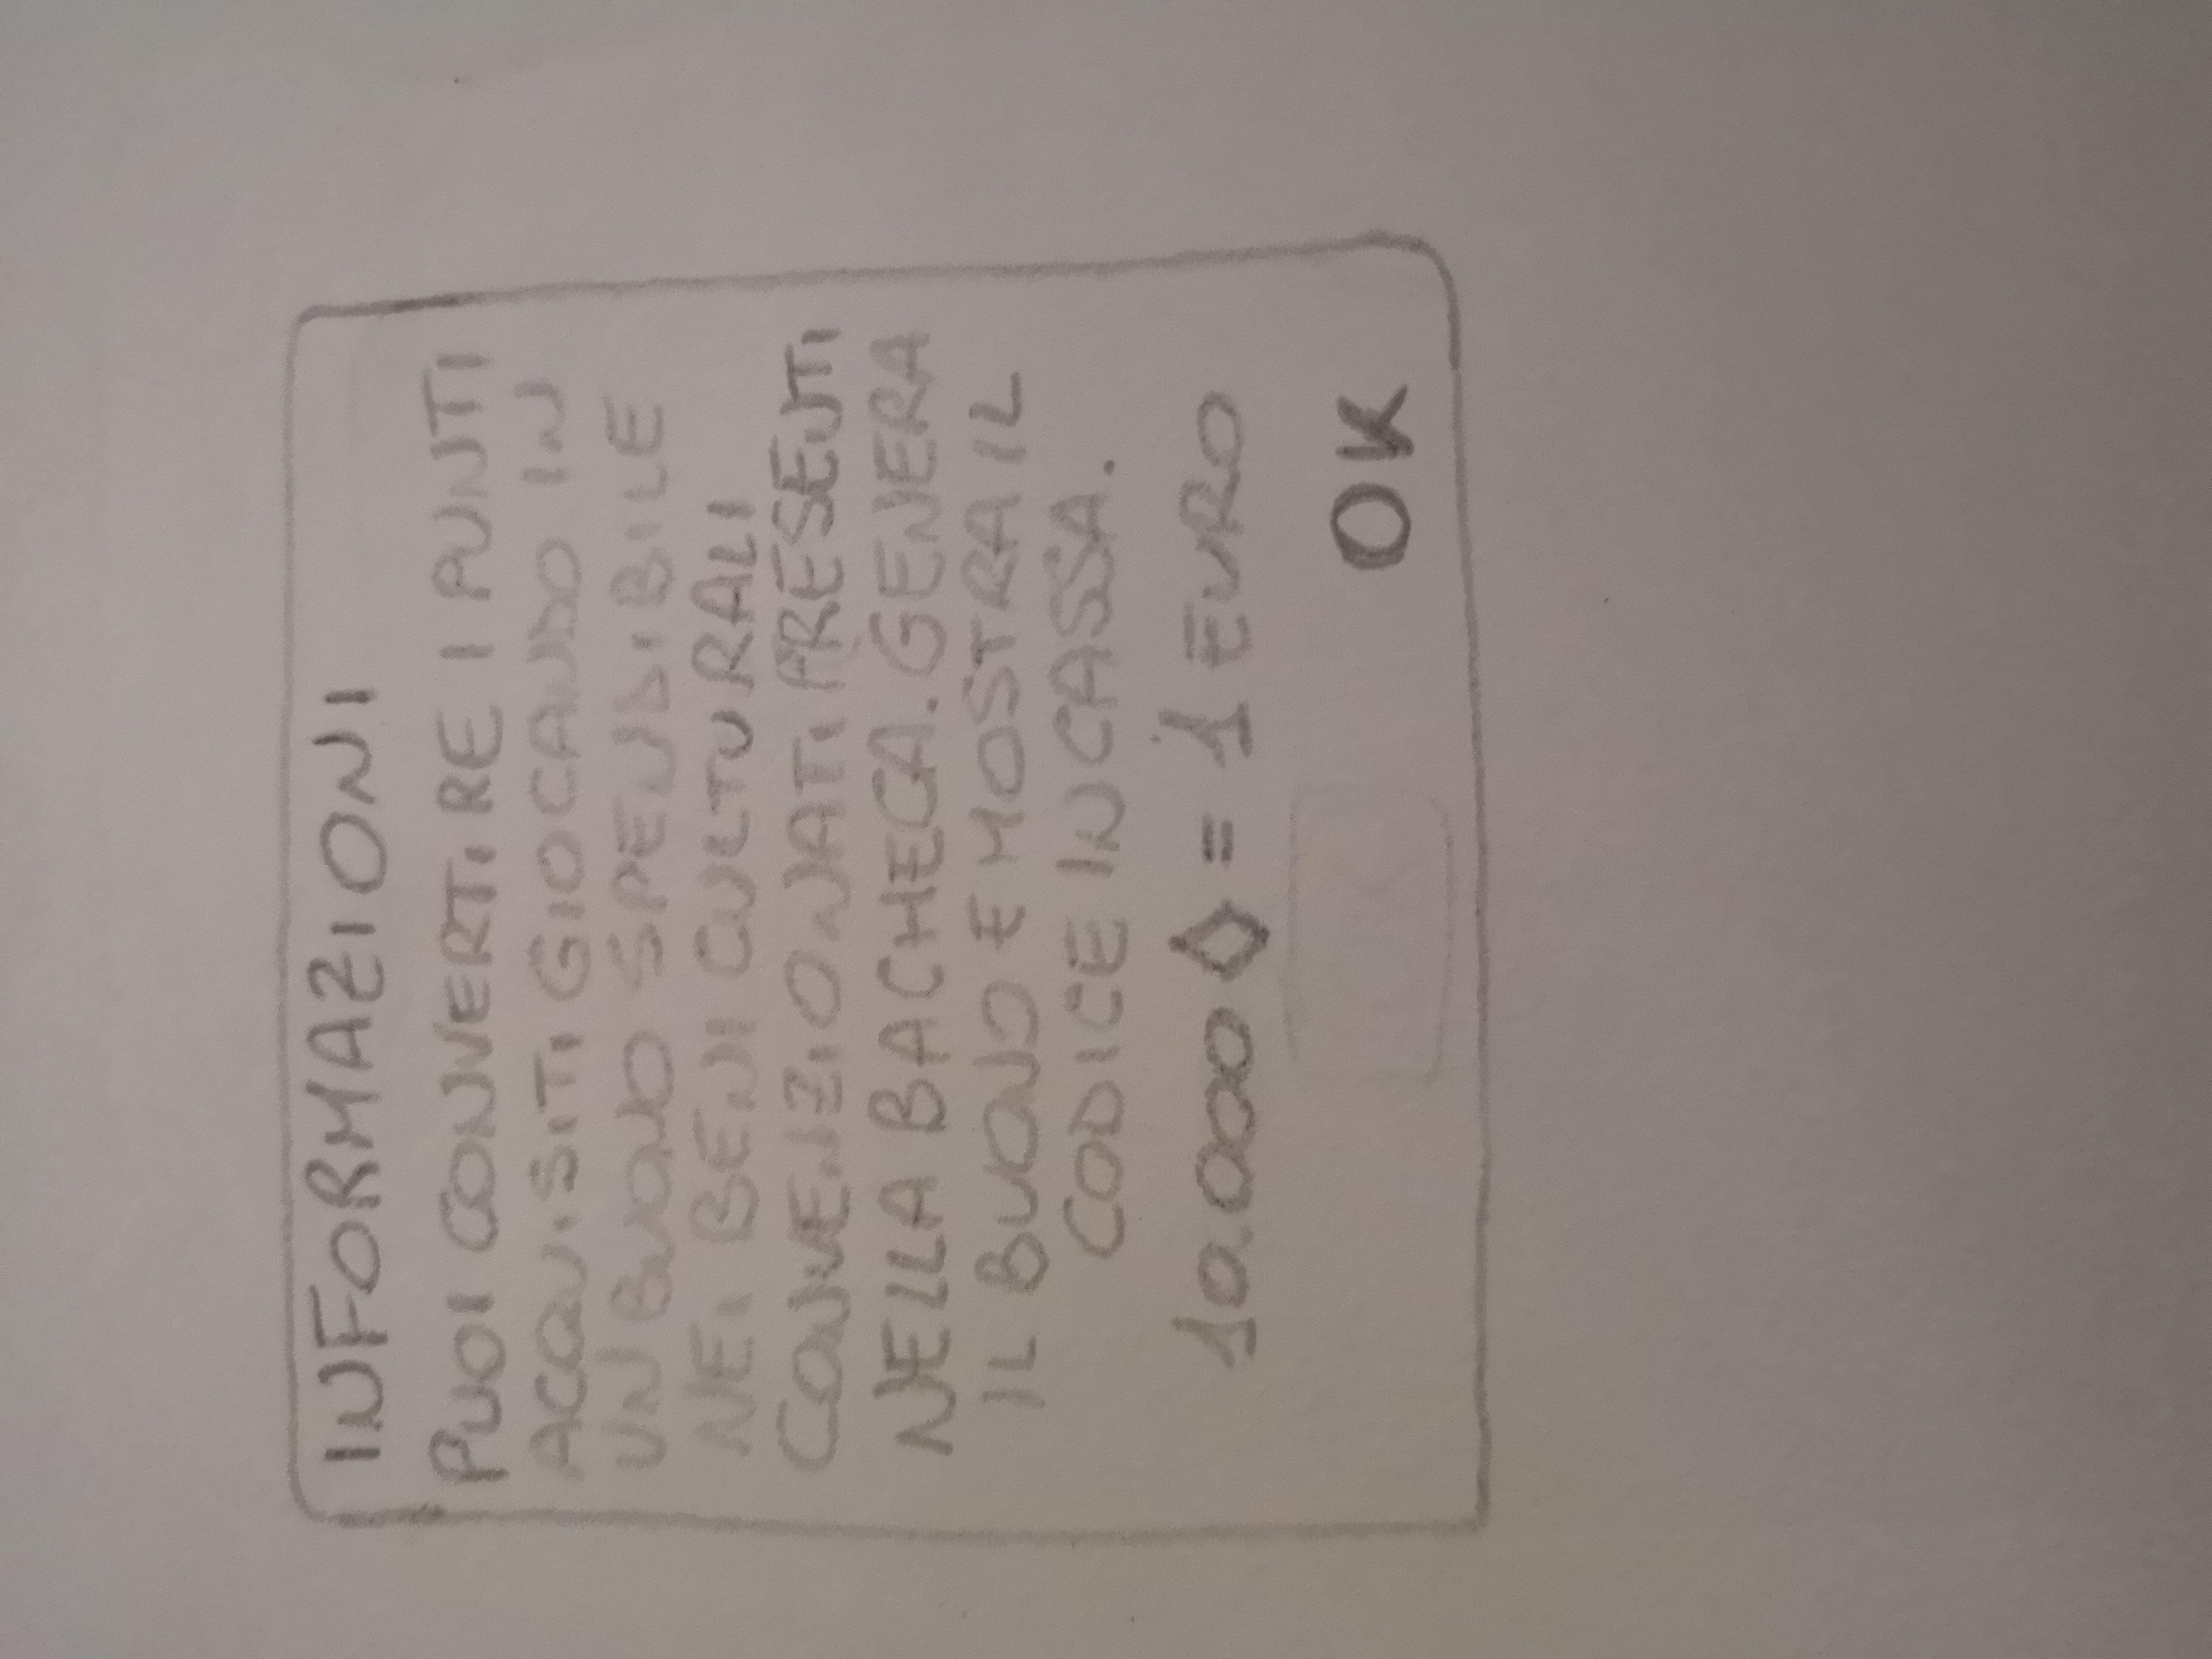 INFORMAZIONI
PUOI CONVERTIRE I PUNTI
ACQUISITI GIOCANDO IN
UN BUONO SPENDIBILE
NEI BENI CULTURALI
CONVENZIONATI PRESENTI
NELLA BACHECA. GENERA
IL BUONO E MOSTRA IL
CODICE IN CASSA.
10.000 ◊ = 1 EURO
OK